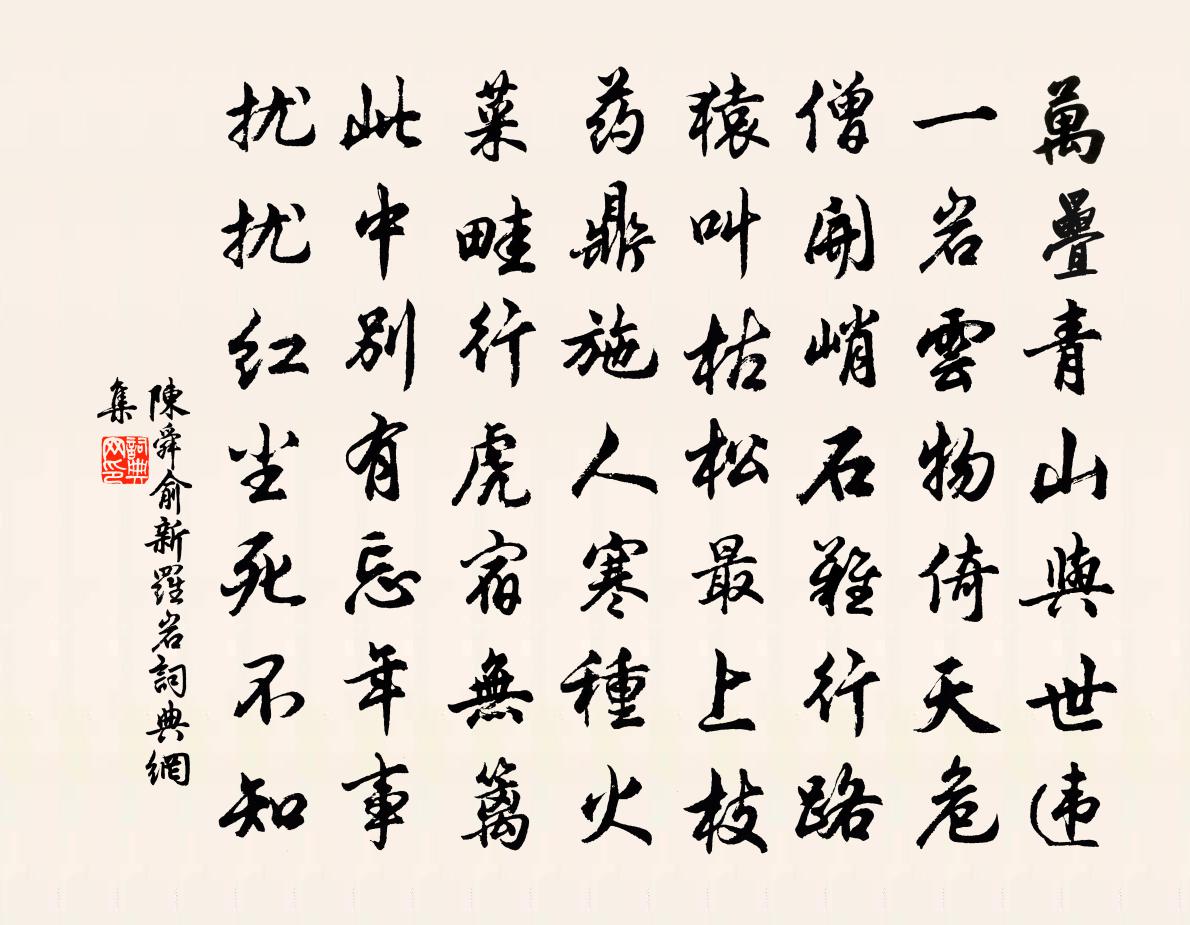 萬疊青山與世违
一岩雲物倚天危
僧開峭石難行路
猿叫枯松最上枝
药鼎施人寒種火
菜畦行虎宿無篱
此中别有忘年事
扰扰红尘死不知
陳舜俞新羅岩詞典網
集
詞典
网印